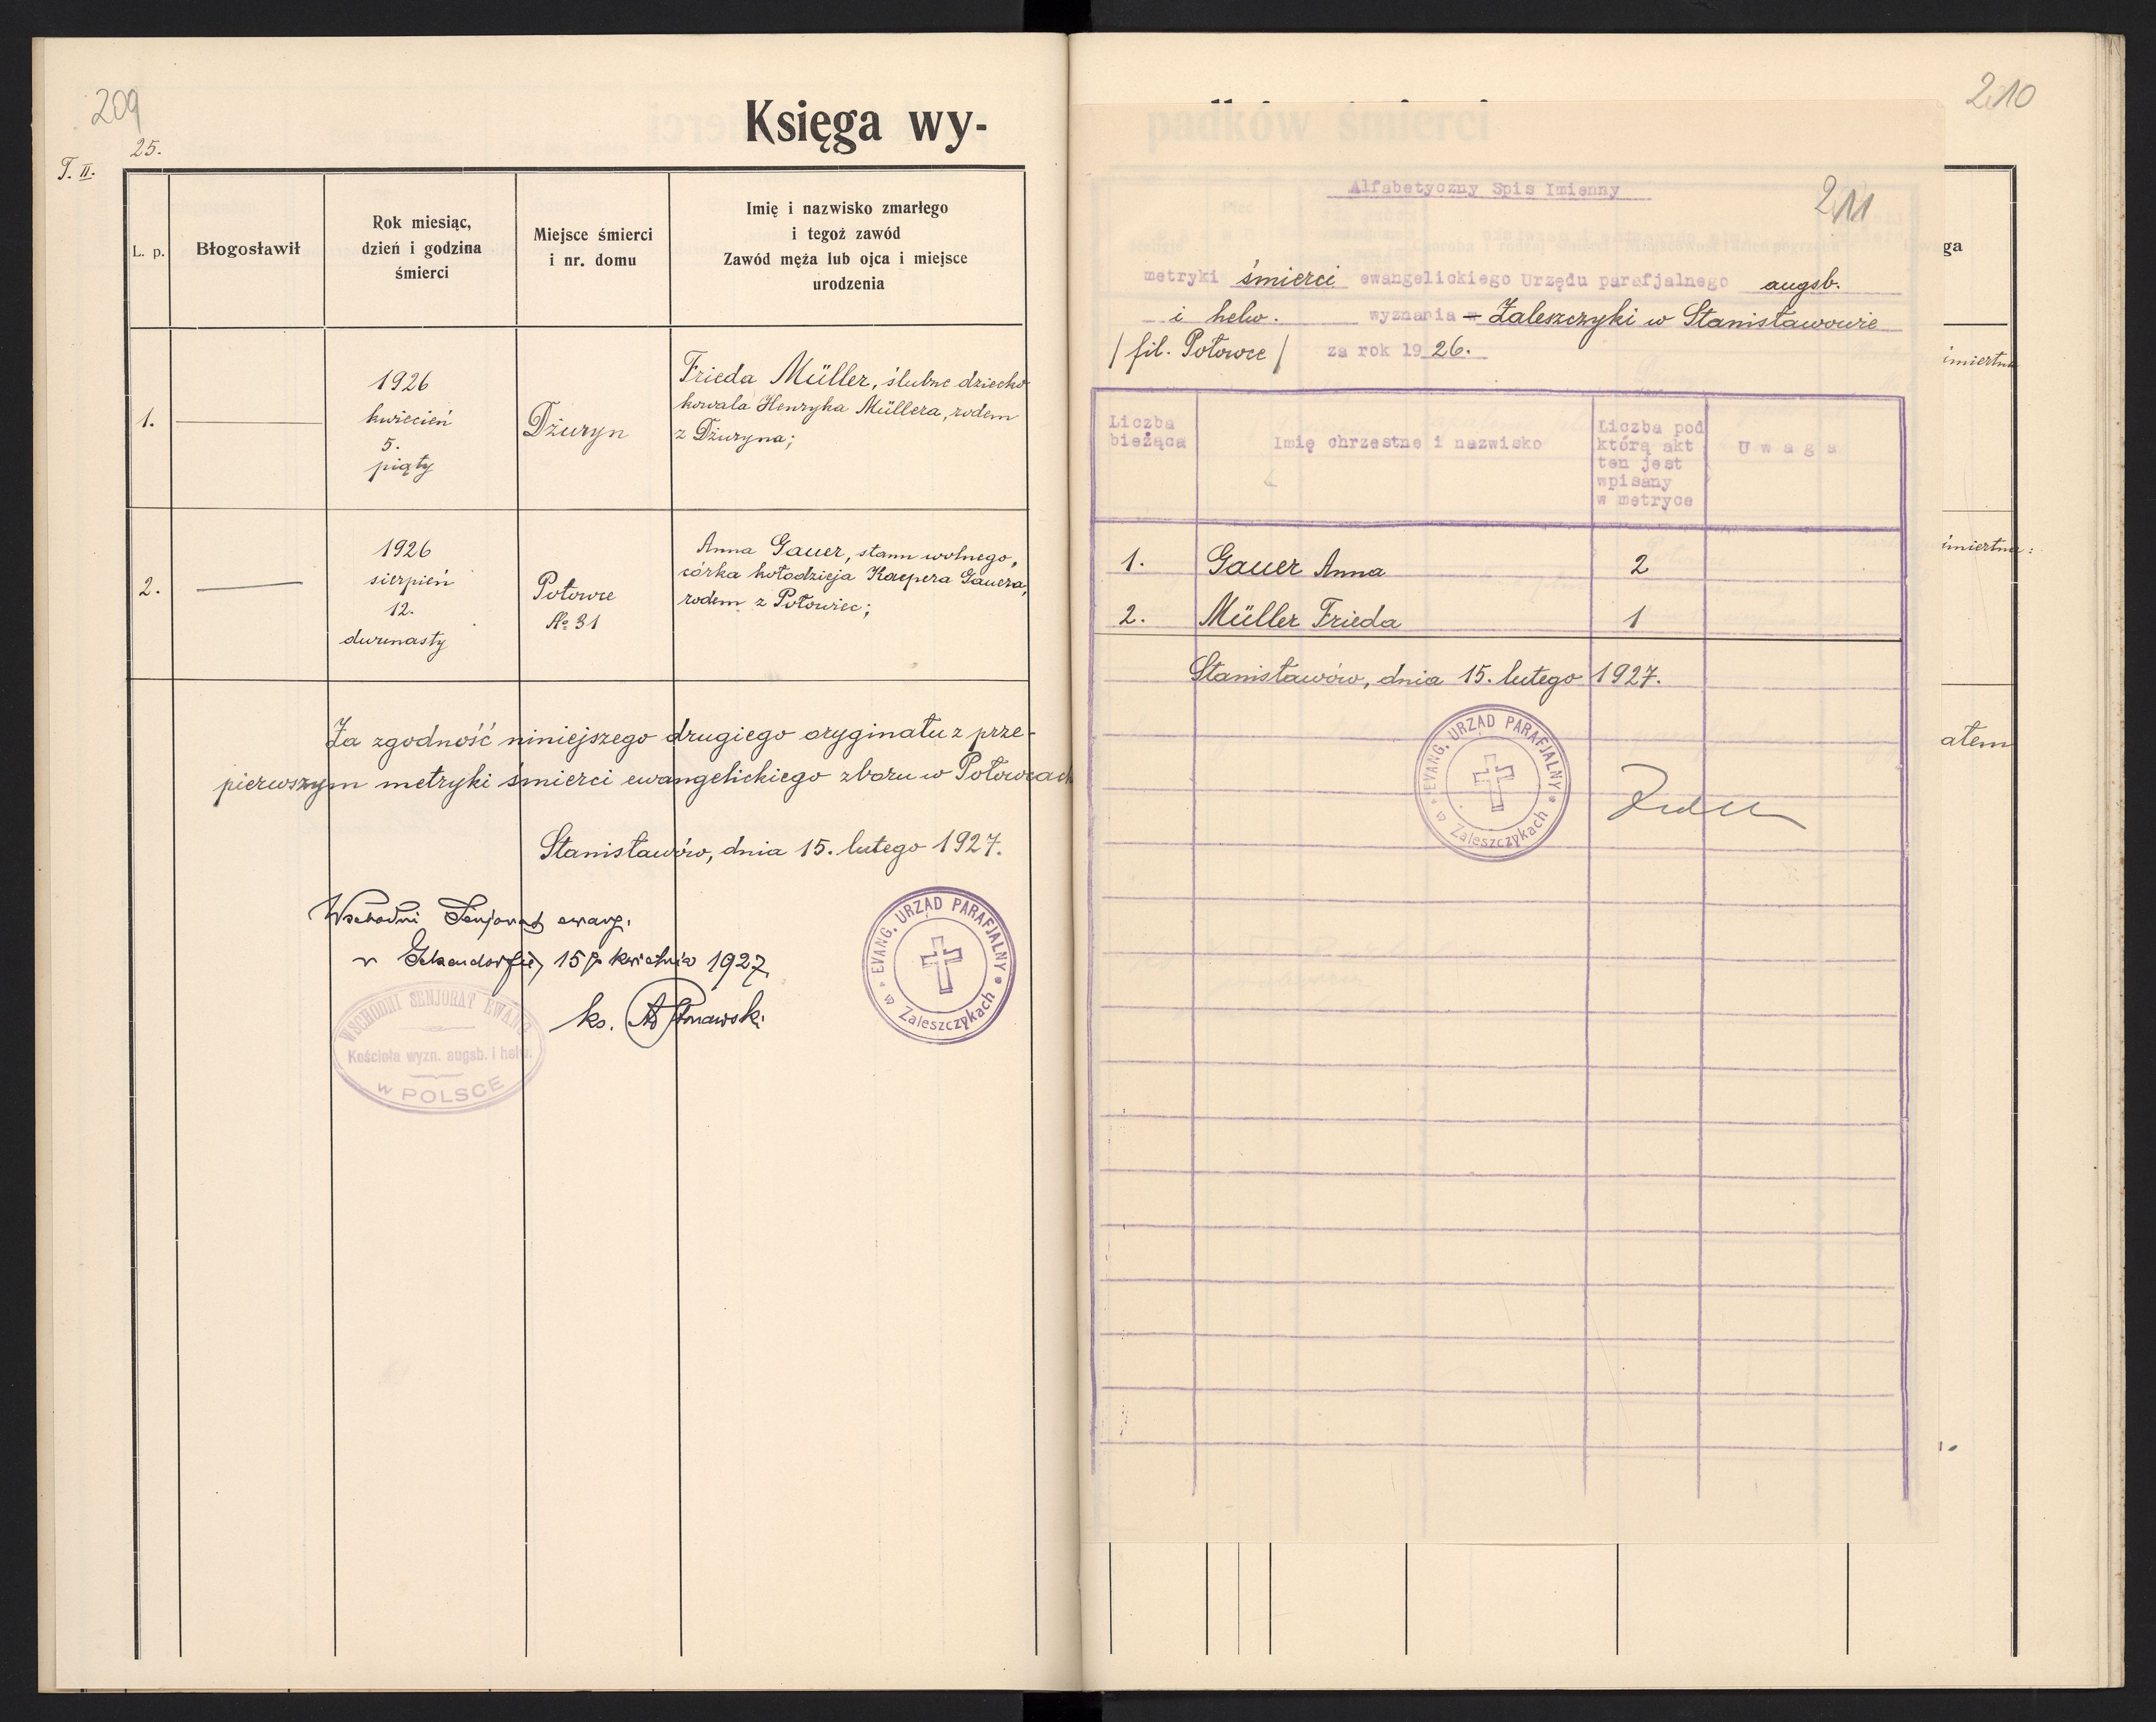 209
25.
T. II.
Księga wy-
L. p.
Błogosławił
Rok miesiąc,
dzień i godzina
śmierci
Miejsce śmierci
i nr. domu
Imię i nazwisko zmarłego
i tegoż zawód
Zawód męża lub ojca i miejsce
urodzenia
1.
1926
kwiecień
5.
piąty
Dżuryn
Frieda Müller, ślubne dziecko
kowala Henryka Müllera, rodem
z Dżuryna;
2.
1926
sierpień
12.
dwunasty
Połowce
№ 31
Anna Gauer, stanu wolnego,
córka kołodzieja Kaspera Gauera,
rodem z Połowiec;
Za zgodność niniejszego drugiego oryginału z prze-
pierwszym metryki śmierci ewangelickiego zboru w Połowcach
Stanisławów, dnia 15. lutego 1927.
Wschodni Senjorat ewang.
w Gelsendorfie, 15 kwietnia 1927.
ks.
WSCHODNI SENJORAT EWANG.
Kościoła wyzn. augsb. i helw.
w POLSCE
EVANG. URZĄD PARAFJALNY
w Zaleszczykach
210
padków śmierci
211
Alfabetyczny Spis Imienny
metryki śmierci ewangelickiego Urzędu parafjalnego augsb.
i helw. wyznania - Zaleszczyki w Stanisławowie
/ fil. Połowce / za rok 1926.
Liczba
bieżąca
Imię chrzestne i nazwisko
Liczba pod
którą akt
ten jest
wpisany
w metryce
Uwaga
1. Gauer Anna 2
2. Müller Frieda 1
Stanisławów, dnia 15. lutego 1927.
EVANG. URZĄD PARAFJALNY
w Zaleszczykach
ga
śmiertna
śmiertna:
ałem